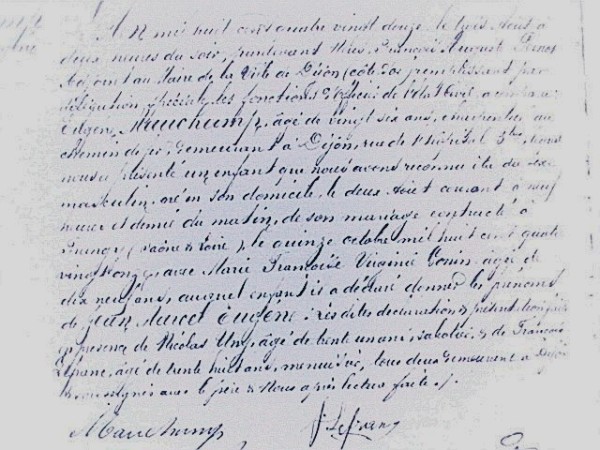 L'An mil huit cent quatre vingt douze, le trois Août à
deux heures du soir, pardevant Nous, François Auguste
Adjoint au Maire de la Ville de Dijon (côte d'or) remplissant par
délégation spéciale les fonctions d'officier de l'état civil, a comparu
Eugène Mauchamp, âgé de vingt six ans, charpentier au
chemin de fer, demeurant à Dijon, rue de l'hôpital 5ter, lequel
nous a présenté un enfant que nous avons reconnu être du sexe
masculin, né en son domicile, le deux Août courant à neuf
heures et demie du matin, de son mariage contracté à
(Saône & Loire), le quinze octobre mil huit cent quatre
vingt onze, avec Marie Françoise Virginie âgée de
dix neuf ans, auquel enfant il a déclaré donner les prénoms
de Jean Marcel Eugène. Les dites déclaration & présentation faites
en présence de Nicolas âgé de trente un ans, & de François
âgé de trente huit ans, menuisier, tous deux demeurant à Dijon
soussignés avec le père & Nous après lecture faite ./.
Mauchamp